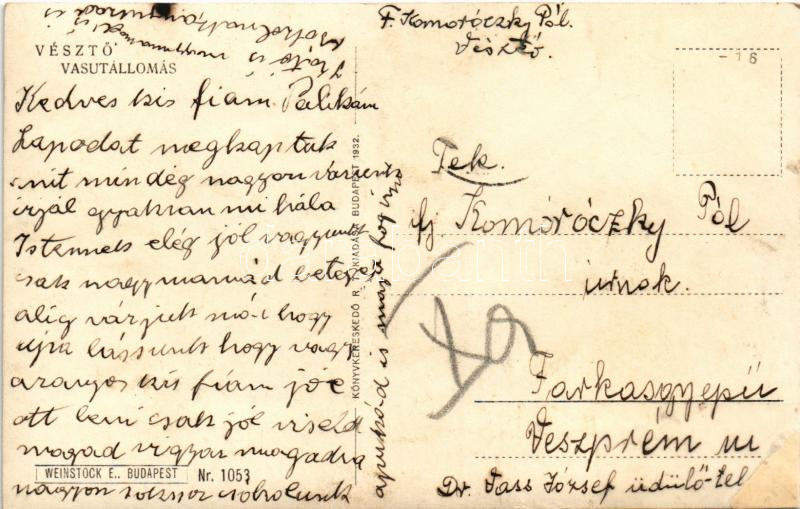 VÉSZTŐ
VASUTÁLLOMÁS
Kedves kis fiam Palikám
Lapodat megkaptuk
mit mindég nagyon várunk
irjál gyakran mi hála
Istennek elég jól vagyunk
csak nagymamád beteg
alig várjuk má-i hogy
ujra lássunk hogy vagy
aranyos kis fiam jól
ott lenni csak jól viseld
magad vigyáz magadra
nagyon sokszor csókolunk
apukád is majd fog írni
WEINSTOCK E., BUDAPEST Nr. 1053
KÖNYVKERESKEDŐ R. T. KIADÁSA BUDAPEST 1932.
F. Komoróczky Pál.
Vésztő.
– 16
Tek.
ifj Komoróczky Pál
urnak.
Farkasgyepü
Veszprém m
Dr. Tass József üdülő-tel